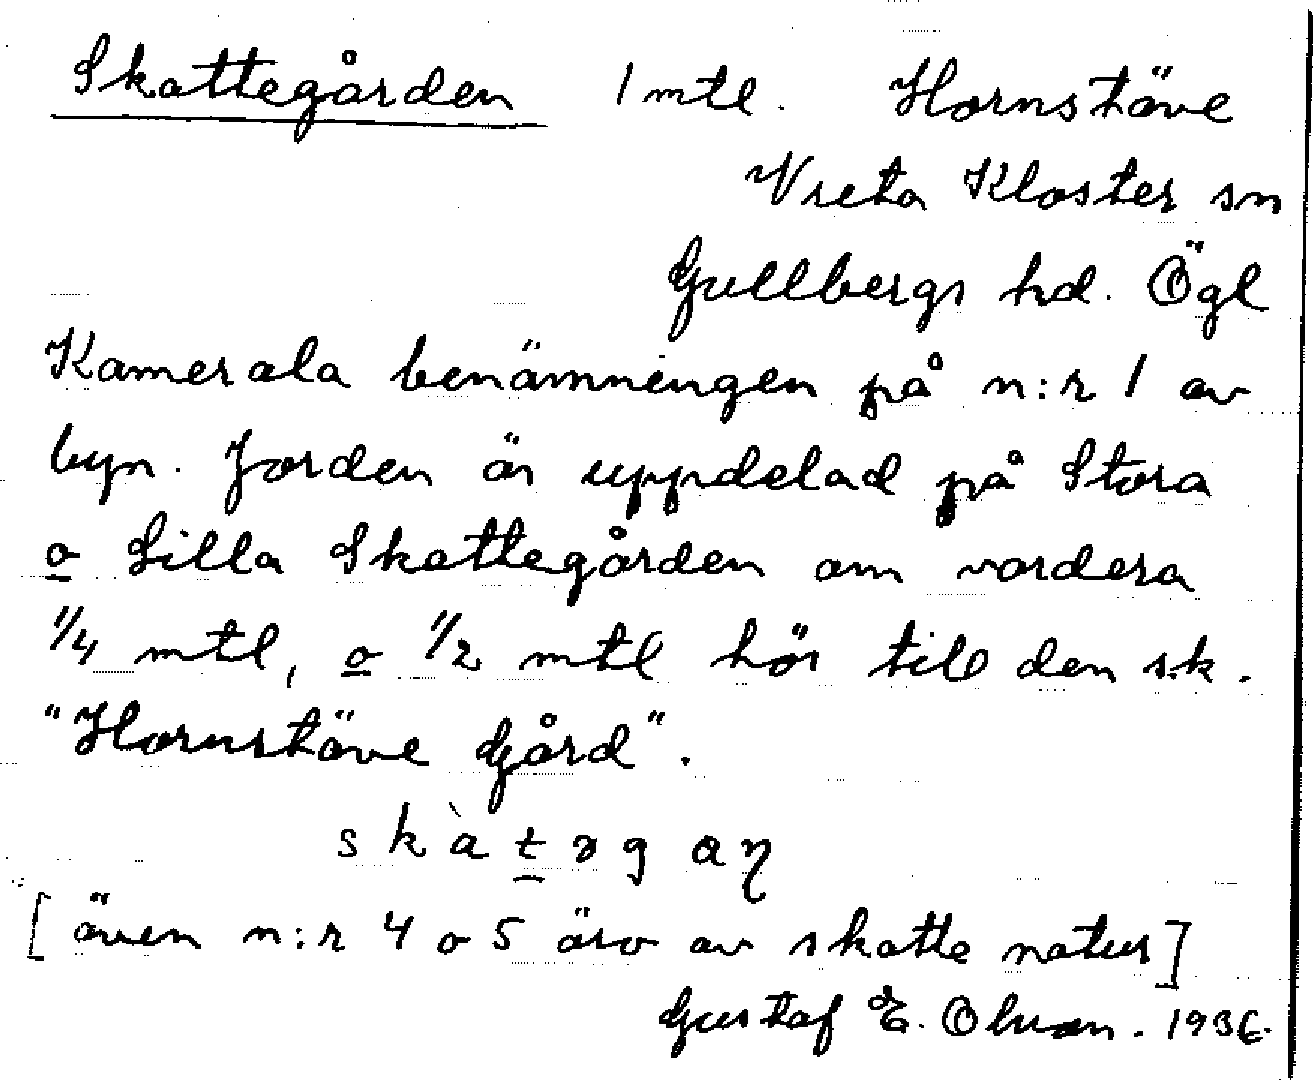 Skattegården 1 mtl. Hornstäve
Vreta Kloster sn
Gullbergs hd. Ögl
Kamerala benämningen på n:r 1 av
byn. Jorden är uppdelad på Stora
o Lilla Skattegården om vardera
1/4 mtl, o 1/2 mtl hör till den s.k.
"Hornstäve Gård".
skàtəgaŋ
[även n:r 4 o 5 äro av skatte natur]
Gustaf E. Olsson. 1936.